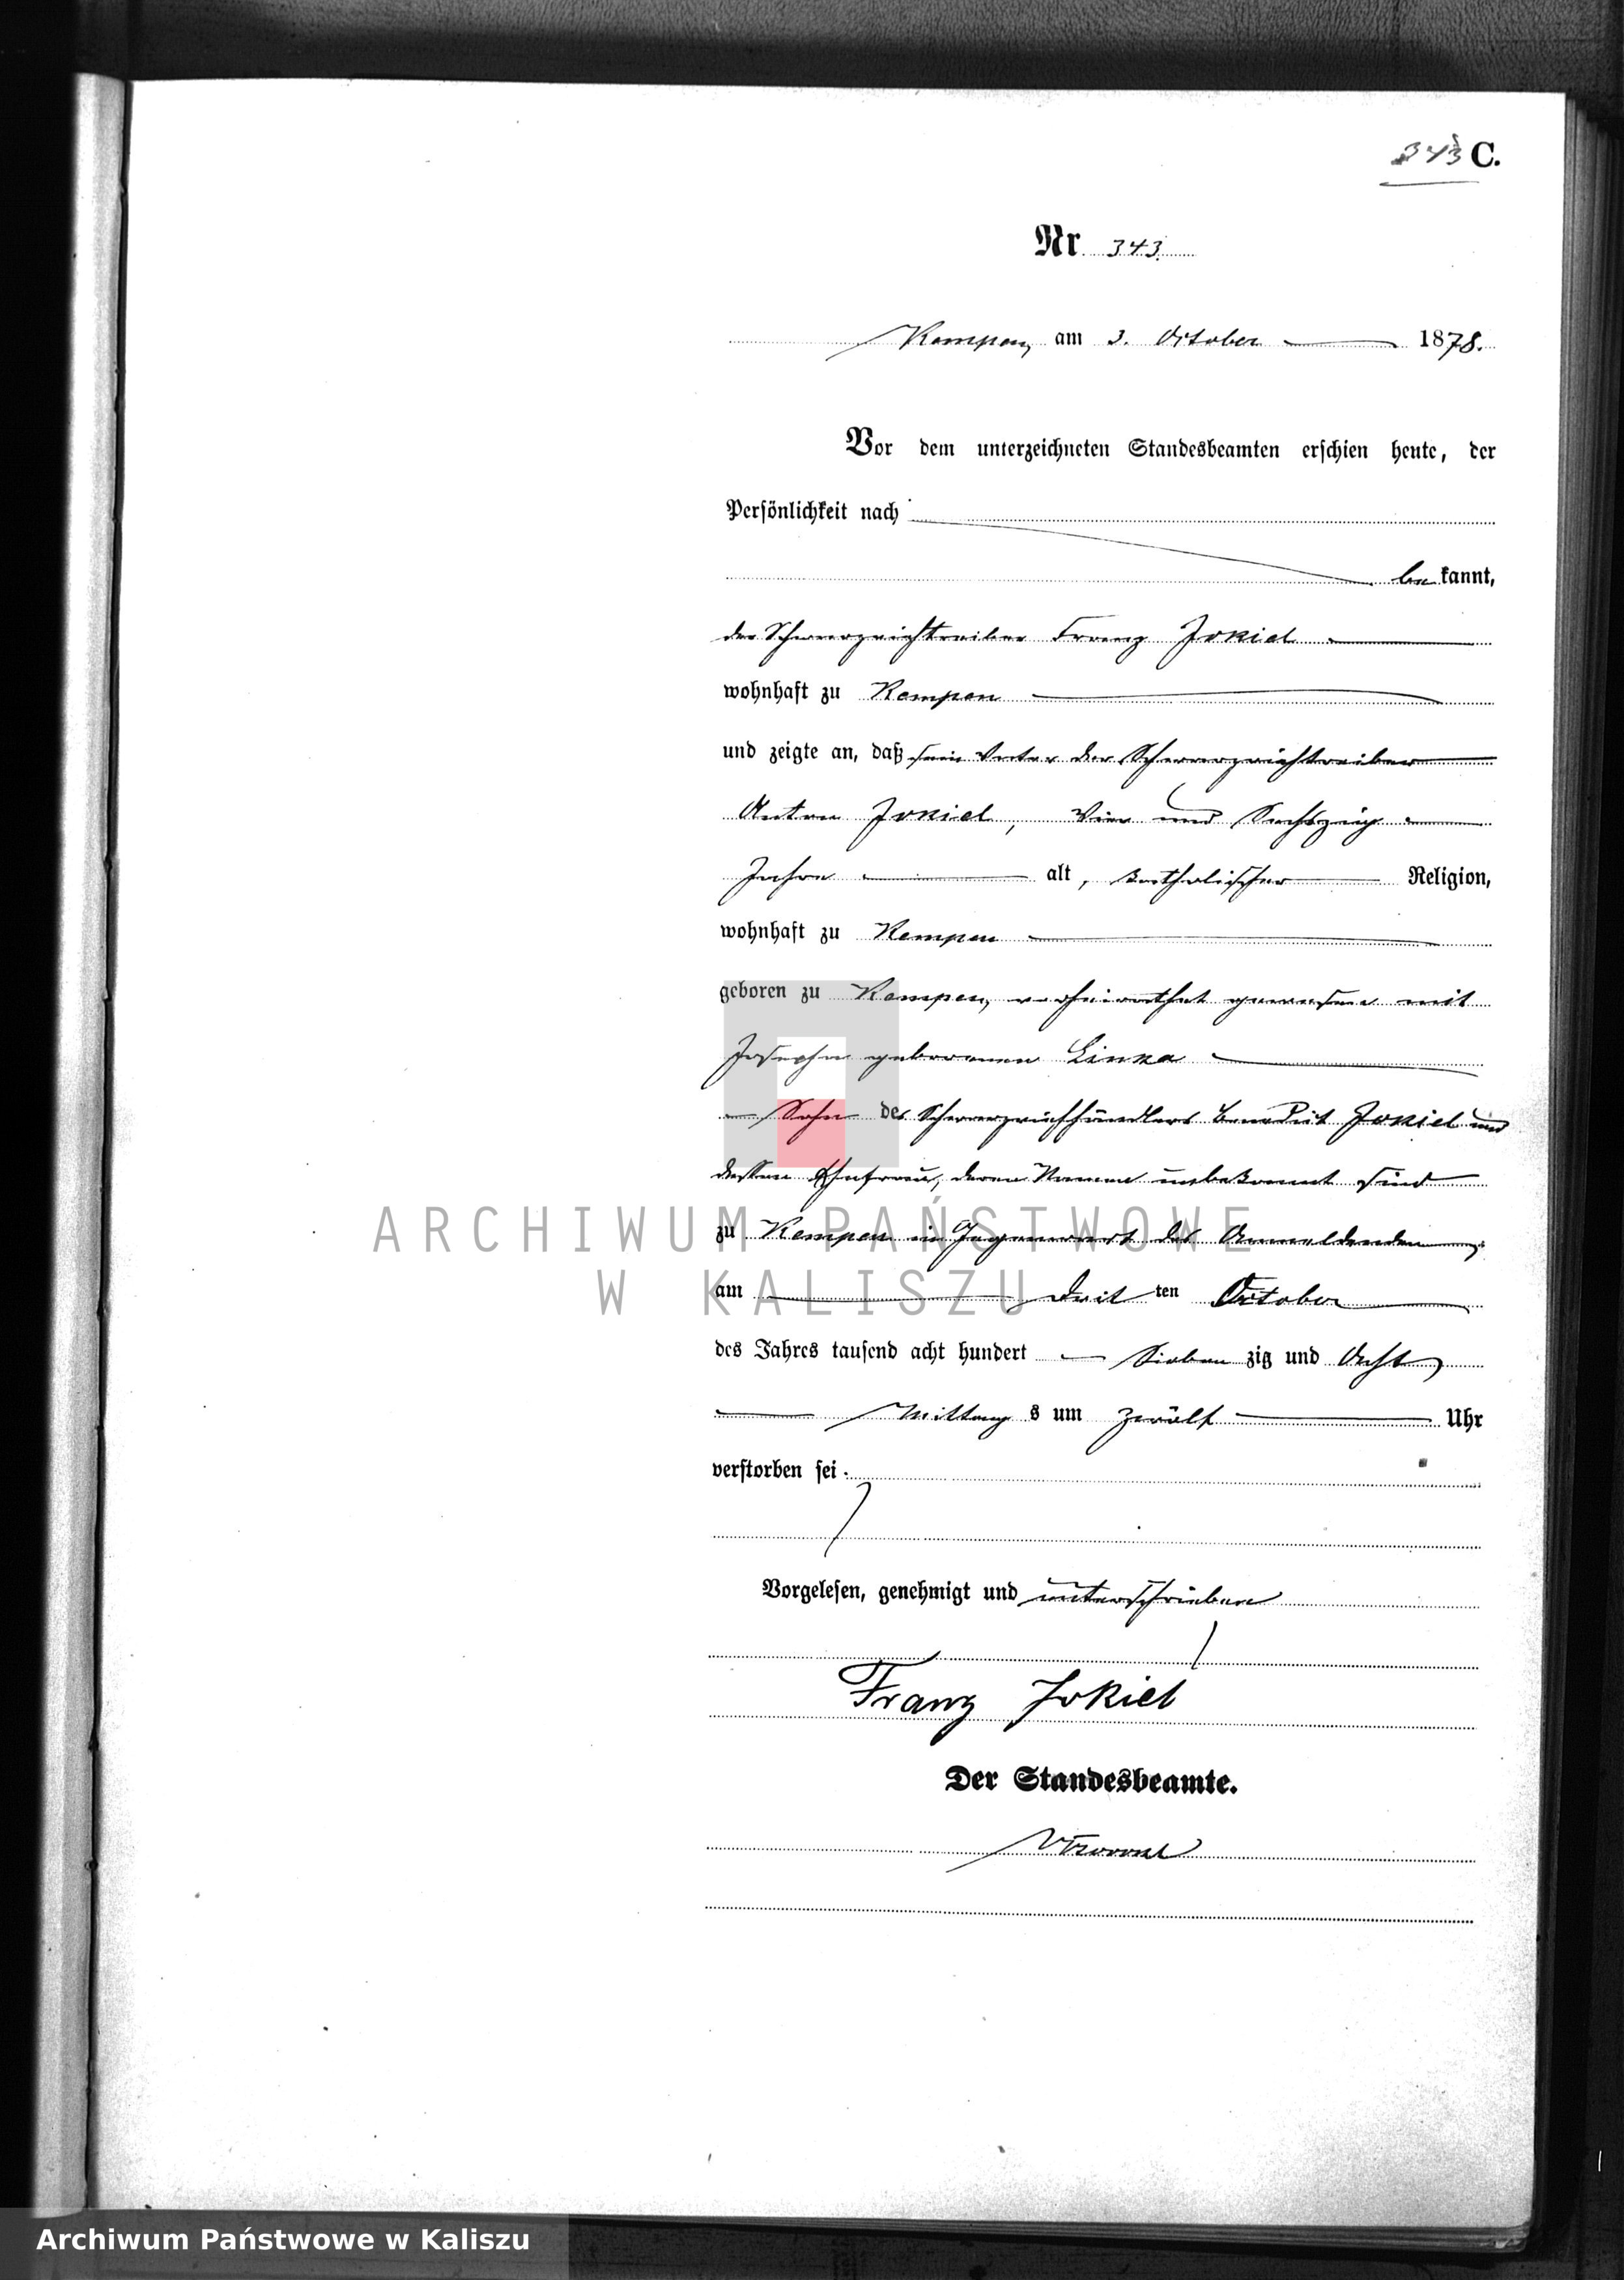 343 C.
Nr. 343.
Kempen, am 3. October 1878.
Vor dem unterzeichneten Standesbeamten erschien heute, der
Persönlichkeit nach
bekannt,
der Schwarzviehtreiber Franz Jokiel
wohnhaft zu Kempen
und zeigte an, daß sein Vater der Schwarzviehtreiber
Anton Jokiel, Vier und Sechszig
Jahre alt, katholischer Religion,
wohnhaft zu Kempen
geboren zu Kempen, verheirathet gewesen mit
geborenen Linka
Sohn des Schwarzviehhändlers Benedict Jokiel und
dessen Ehefrau, deren Namen unbekannt sind
zu Kempen in Gegenwart des Anmeldenden,
am Drit ten October
des Jahres tausend acht hundert Sieben zig und Acht,
Mittag s um zwölf Uhr
verstorben sei.
Vorgelesen, genehmigt und unterschrieben
Franz Jokiel
Der Standesbeamte.
ARCHIWUM PAŃSTWOWE
W KALISZU
Archiwum Państwowe w Kaliszu